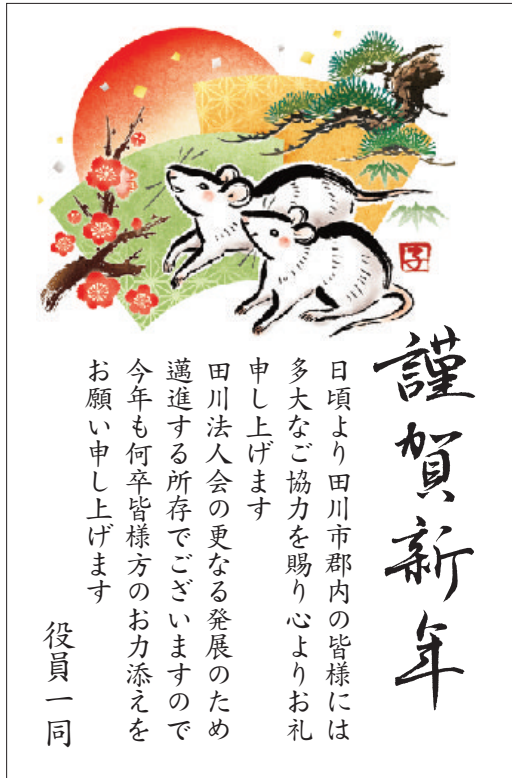 子
謹賀新年
日頃より田川市郡内の皆様には
多大なご協力を賜り心よりお礼
申し上げます
田川法人会の更なる発展のため
邁進する所存でございますので
今年も何卒皆様方のお力添えを
お願い申し上げます
役員一同